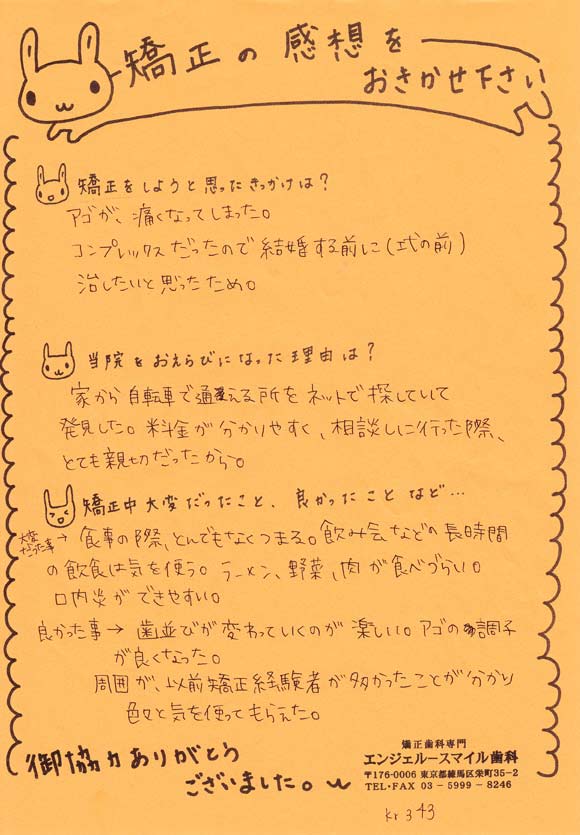 矯正の感想を
おきかせ下さい
矯正をしようと思ったきっかけは?
アゴが、痛くなってしまった。
コンプレックスだったので結婚する前に(式の前)
治したいと思ったため。
当院をおえらびになった理由は?
家から自転車で通える所をネットで探していて
発見した。料金が分かりやすく、相談しに行った際、
とても親切だったから。
矯正中大変だったこと、良かったことなど…
大変だった事→食事の際、とんでもなくつまる。飲み会などの長時間
の飲食は気を使う。ラーメン、野菜、肉が食べづらい。
口内炎ができやすい。
良かった事→歯並びが変わっていくのが楽しい。アゴの調子
が良くなった。
周囲が、以前矯正経験者が多かったことが分かり
色々と気を使ってもらえた。
御協力ありがとう
ございました。
矯正歯科専門
エンジェルースマイル歯科
〒176-0006 東京都練馬区栄町35-2
TEL・FAX 03-5999-8246
kr343